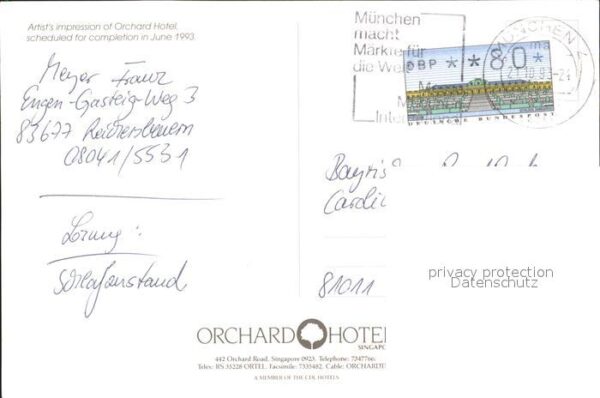 Artist's impression of Orchard Hotel,
scheduled for completion in June 1993.
Meyer Franz
Eugen-Gasteig-Weg 3
83677 Reichersbeuern
08041/5531
Lösung:
München
macht
Märkte für
die Welt
MÜNCHEN
DBP * * 80 *
DEUTSCHE BUNDESPOST
81011
privacy protection
Datenschutz
ORCHARD HOTE
SINGAPO
442 Orchard Road, Singapore 0923. Telephone: 7347766.
Telex: RS 35228 ORTEL. Facsimile: 7335482. Cable: ORCHARDE
A MEMBER OF THE CDL HOTELS